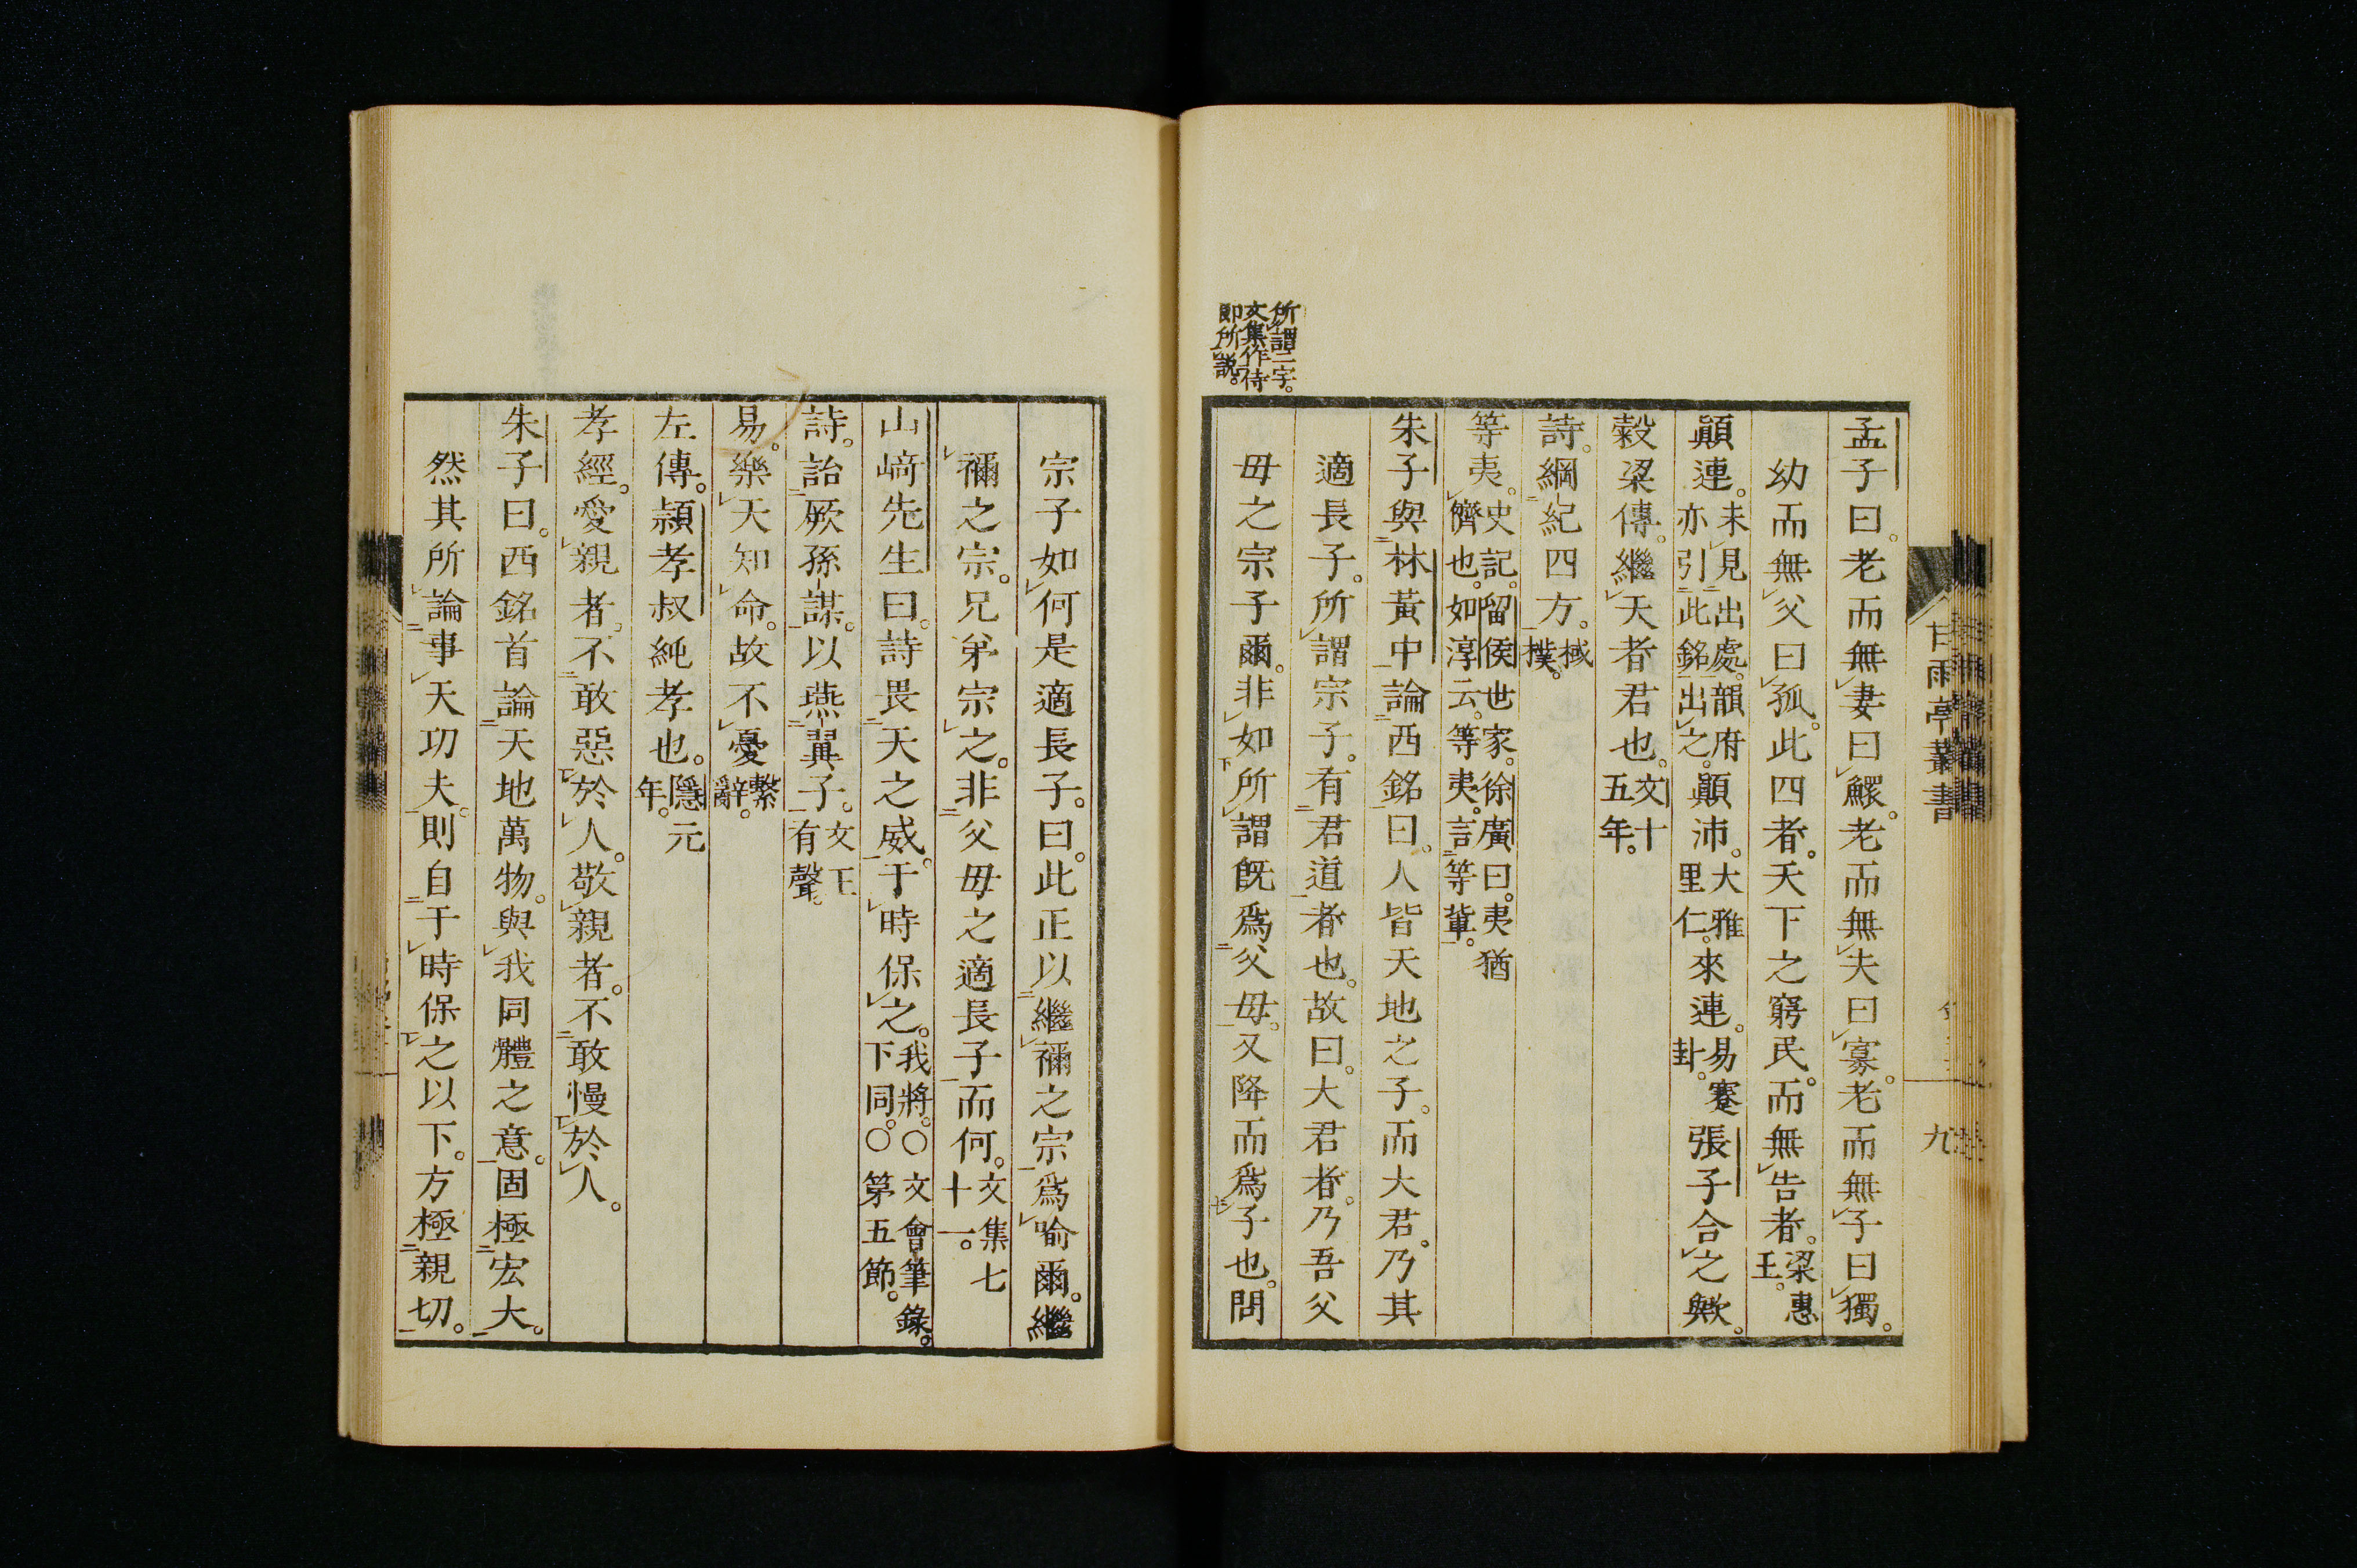 孟子曰。老而無妻曰鰥。老而無夫曰寡。老而無子曰獨。
幼而無父曰孤。此四者。天下之窮民。而無告者。梁惠王。
顚連。未見出處。韻府亦引此銘出之。顚沛。大雅里仁。來連。易蹇卦。張子合之歟。
穀梁傳。繼天者君也。文十五年。
詩。綱紀四方。棫樸。
等夷。史記。留侯世家。徐廣曰。夷猶儕也。如淳云。等夷。言等輩。
朱子與林黃中論西銘曰。人皆天地之子。而大君。乃其
適長子。所謂宗子。有君道者也。故曰。大君者。乃吾父
母之宗子爾。非如所謂既爲父母。又降而爲子也。問
所謂二字。
文集作侍
郎所說。
甘雨亭叢書
九
宗子如何是適長子。曰。此正以繼禰之宗爲喩爾。繼
禰之宗。兄弟宗之。非父母之適長子而何。文集七十一。
山﨑先生曰。詩畏天之威。于時保之。我將。○文會筆錄。下同。○第五節。
詩。詒厥孫謀。以燕翼子。文王有聲。
易。樂天知命。故不憂。繫辭。
左傳。潁考叔純孝也。隱元年。
孝經。愛親者。不敢惡於人。敬親者。不敢慢於人。
朱子曰。西銘首論天地萬物。與我同體之意。固極宏大。
然其所論事天功夫。則自于時保之以下。方極親切。